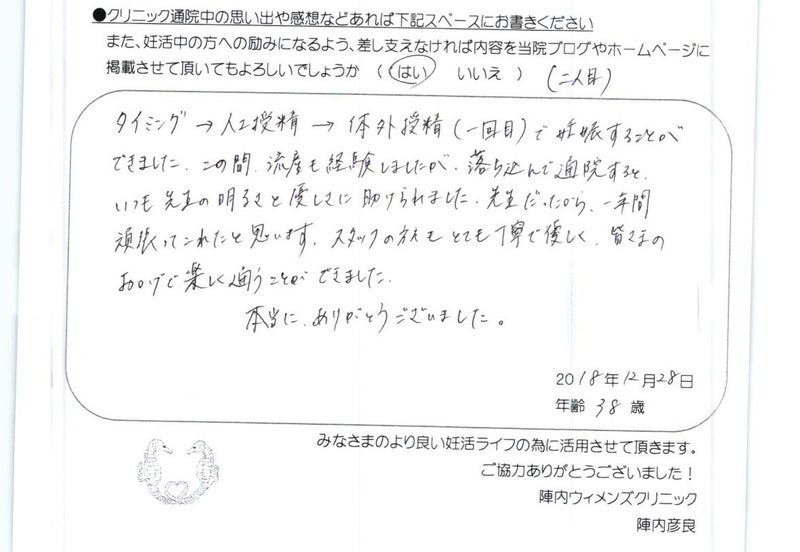 ●クリニック通院中の思い出や感想などあれば下記スペースにお書きください
また、妊活中の方への励みになるよう、差し支えなければ内容を当院ブログやホームページに
掲載させて頂いてもよろしいでしょうか ( はい いいえ ) (二人目)
タイミング→人工授精→体外授精(一回目)で妊娠することが
できました。この間、流産も経験しましたが、落ち込んで通院すると、
いつも先生の明るさと優しさに助けられました。先生だったから、一年間
頑張ってこれたと思います。スタッフの方々もとても丁寧で優しく、皆さまの
おかげで楽しく通うことができました。
本当に、ありがとうございました。
2018年12月28日
年齢 38 歳
みなさまのより良い妊活ライフの為に活用させて頂きます。
ご協力ありがとうございました!
陣内ウィメンズクリニック
陣内彦良